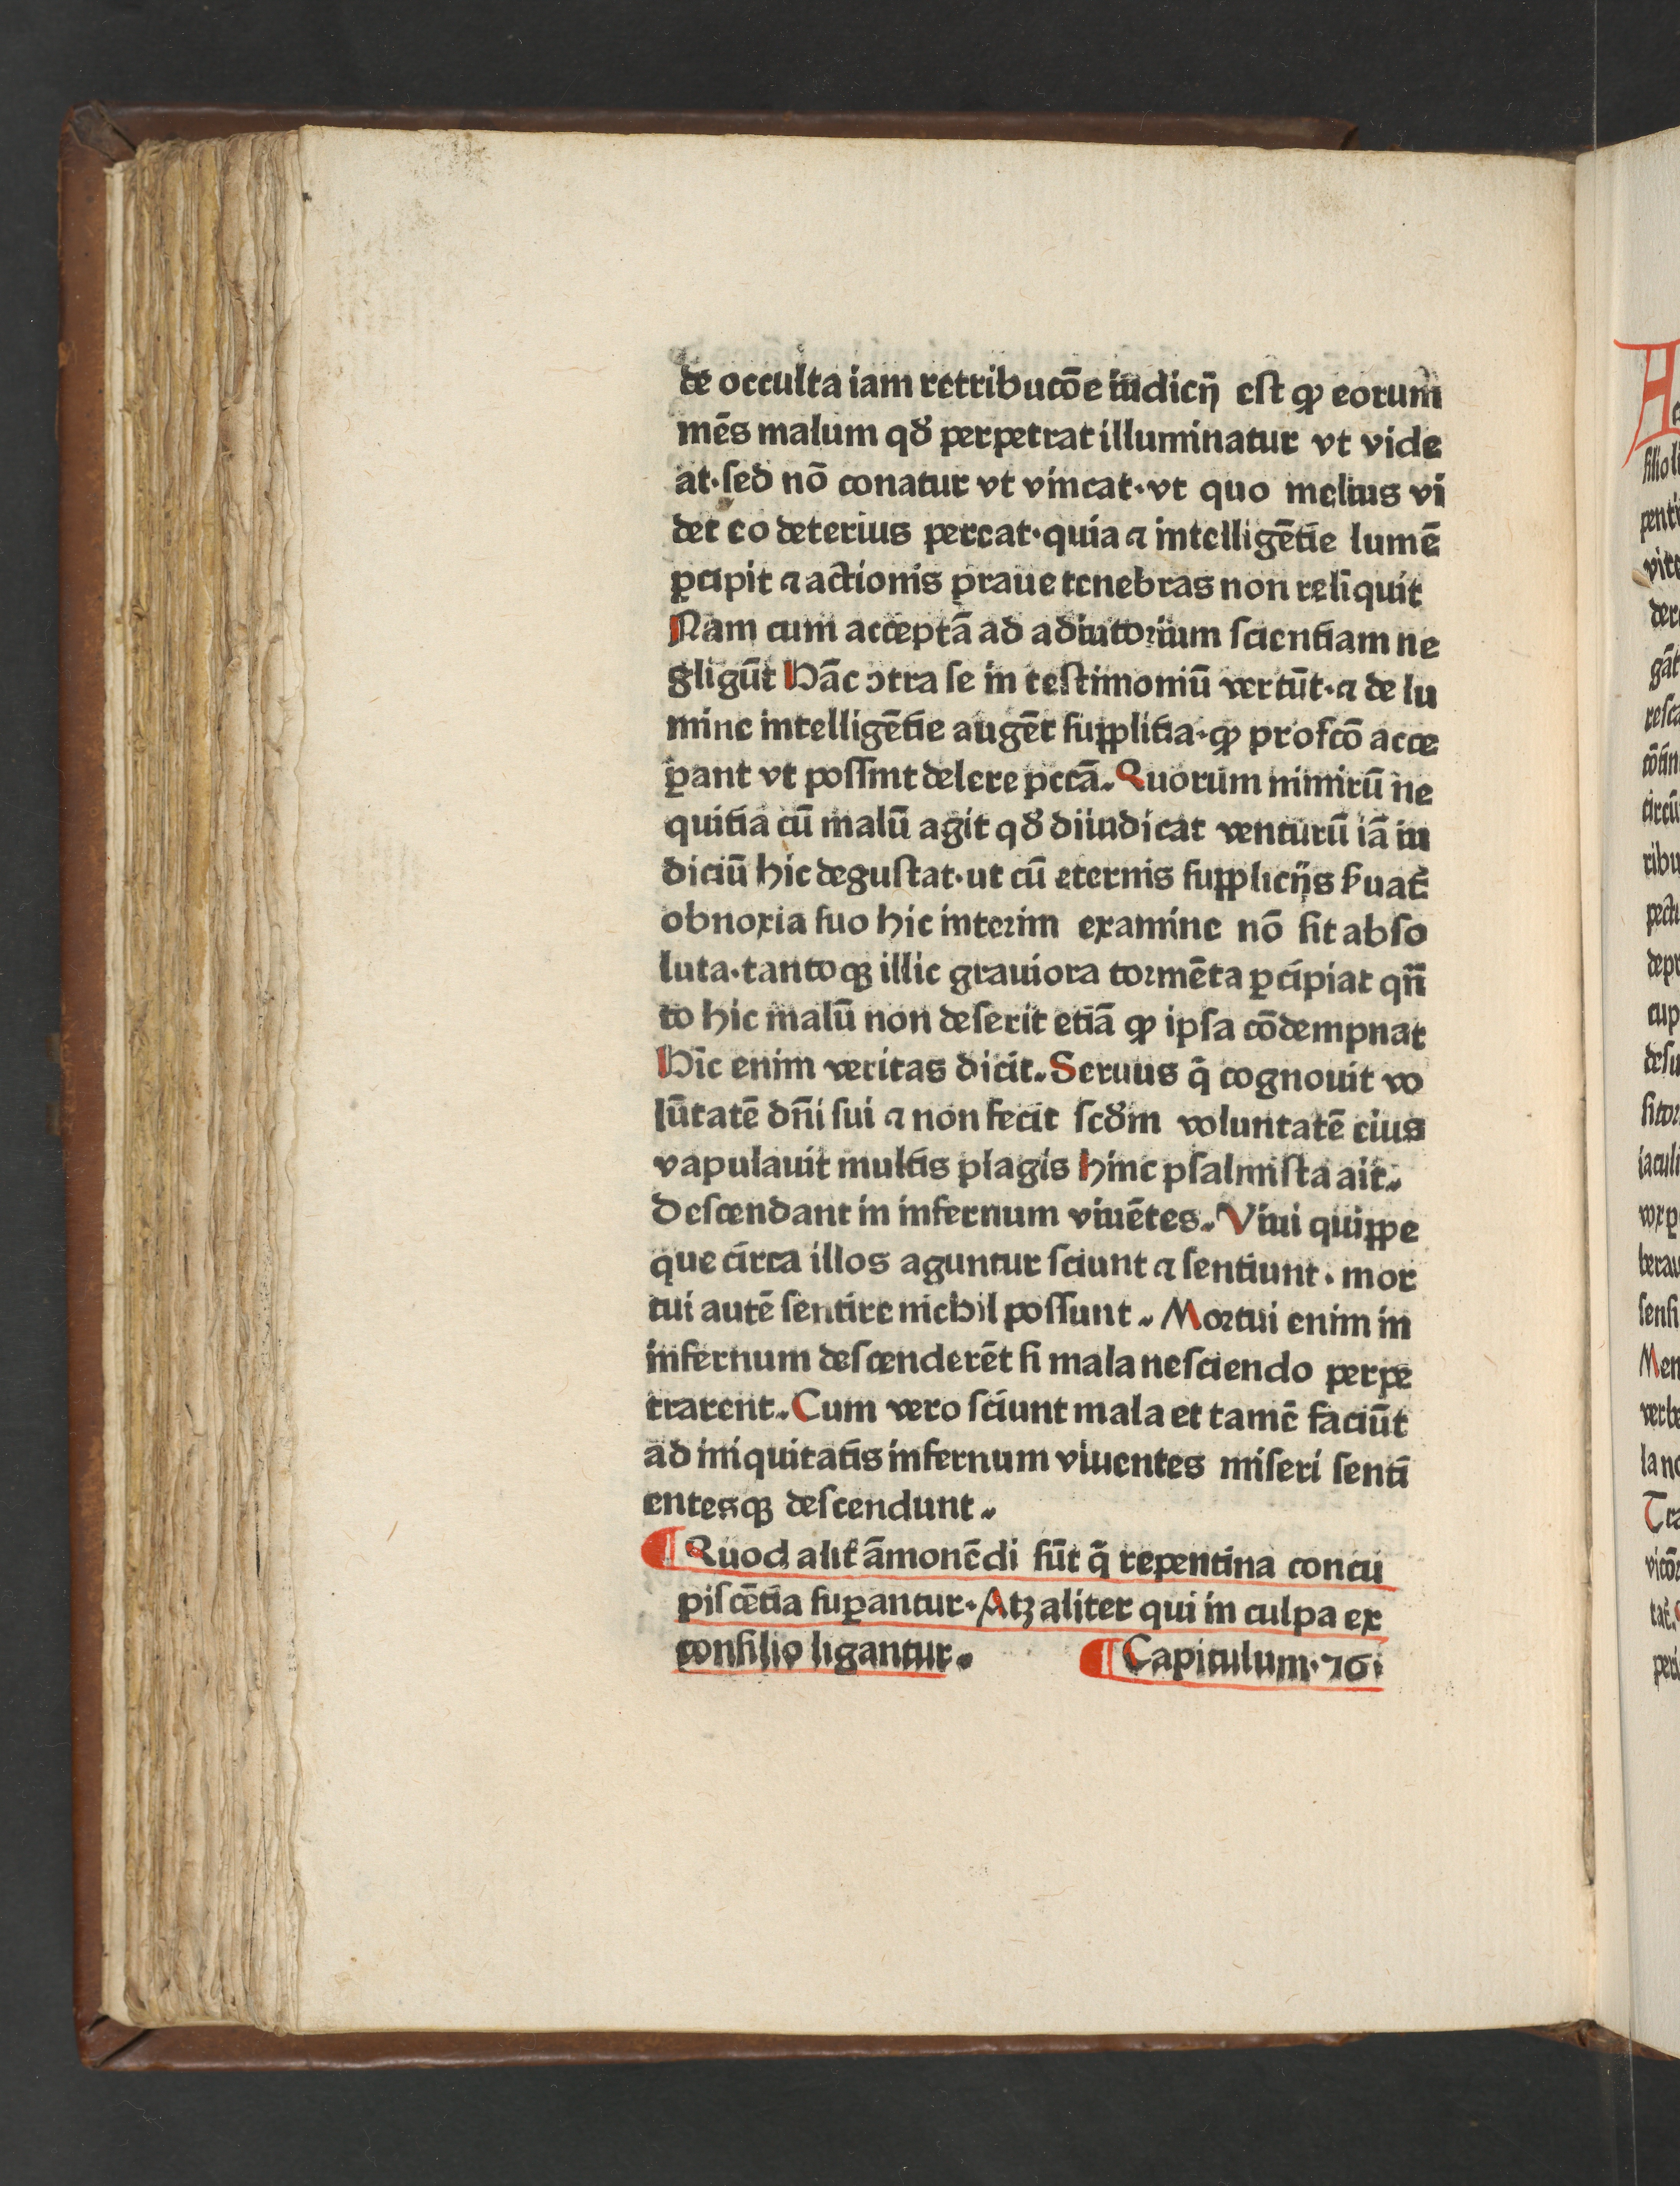 de occulta iam retributōe iudicĳ est ꝙ eorum
mēs malum qđ perpetrat illuminatur vt vide
at·sed nō conatur vt vincat·vt quo melius vi
det eo deterius pereat·quia ⁊ intelligētie lumē
ꝑcipit ⁊ actionis praue tenebras non reliquit
Nam cum acceptā ad adiutorium scientiam ne
gligūt Hāc ɔtra se in testimoniū vertūt·⁊ de lu
mine intelligētie augēt supplitia·ꝙ profcō acce
ꝑant vt possint delere pctā. Quorum nimirū ne
quitia cū malū agit qđ diiudicat venturū iā iu
diciū hic degustat·ut cū eternis supplicĳs ẜuat̄
obnoxia suo hic interim examine nō sit abso
luta·tantoqꝫ illic grauiora tormēta ꝑcipiat qn̄
to hic malū non deserit etiā ꝙ ipsa cōdempnat
Hic enim veritas dicit. Seruus q̄ cognouit vo
lūtatē dn̄i sui ⁊ non fecit scđm voluntatē eius
vapulauit multis plagis hinc psalmista ait.
Descendant in infernum viuētes. Viui quippe
que circa illos aguntur sciunt ⁊ sentiunt · mor
tui autē sentire nichil possunt. Mortui enim in
infernum descenderēt si mala nesciendo perpe
trarent. Cum vero sciunt mala et tamē faciūt
ad iniquitatis infernum viuentes miseri senti
entesqꝫ descendunt.
¶ Quod alit̄ āmonēdi sūt q̄ repentina concu
piscētia suꝑantur. Atꝫ aliter qui in culpa ex
consilio ligantur. ¶ Capitulum·76·